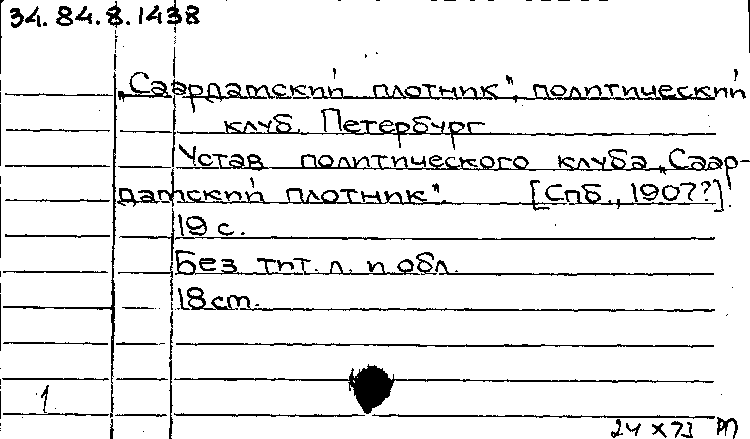 34.84.8.1438
„Саардамский плотник", политический
клуб. Петербург
Устав политического клуба „Саар-
дамский плотник". [Спб., 1907?]
19 с.
Без тит. л. и обл.
18 см.
1
24 X 73